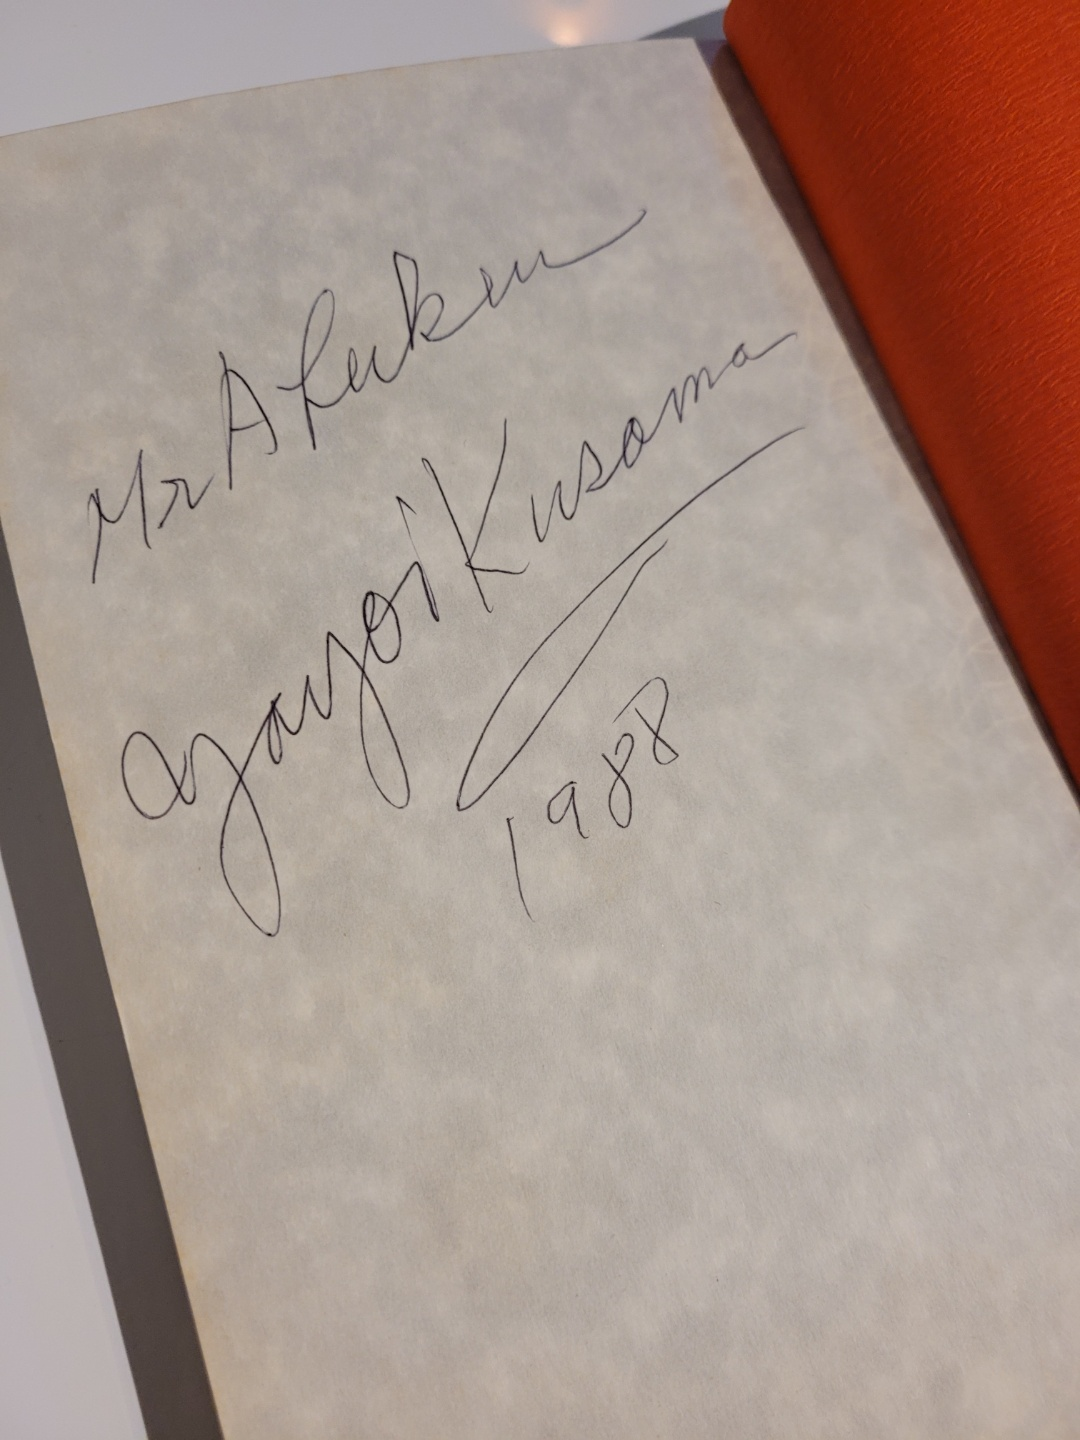 Mr A Luken
Yayoi Kusama
1988